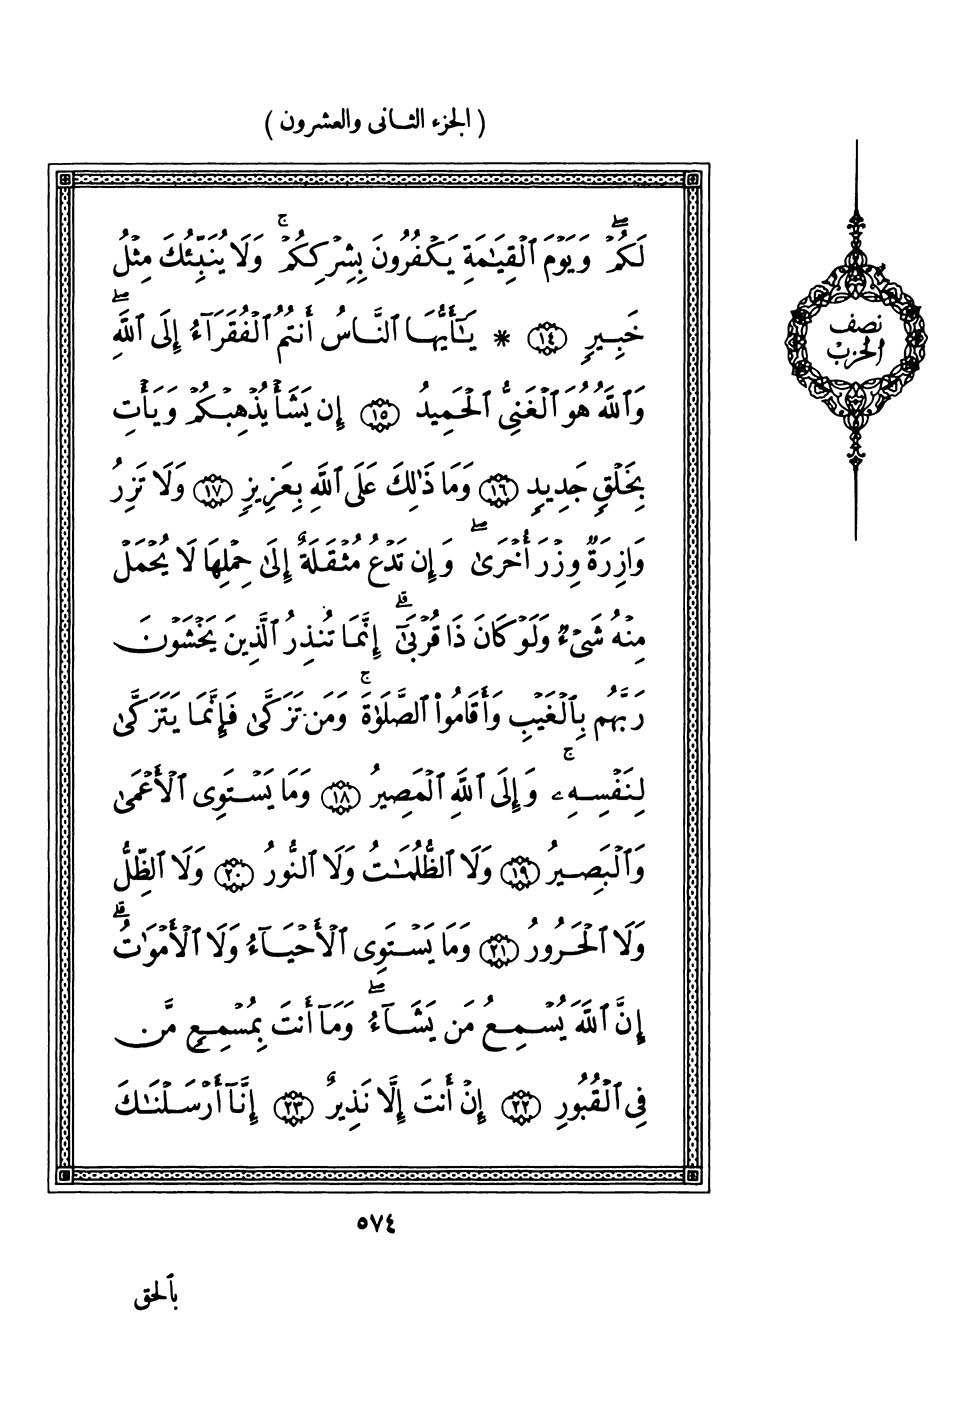 ( الجزء الثانى والعشرون )
لَكُمْۖ وَيَوْمَ ٱلْقِيَٰمَةِ يَكْفُرُونَ بِشِرْكِكُمْۚ وَلَا يُنَبِّئُكَ مِثْلُ
خَبِيرٍ ١٤ * يَٰٓأَيُّهَا ٱلنَّاسُ أَنتُمُ ٱلْفُقَرَآءُ إِلَى ٱللَّهِۖ
وَٱللَّهُ هُوَ ٱلْغَنِىُّ ٱلْحَمِيدُ ١٥ إِن يَشَأْ يُذْهِبْكُمْ وَيَأْتِ
بِخَلْقٍ جَدِيدٍ ١٦ وَمَا ذَٰلِكَ عَلَى ٱللَّهِ بِعَزِيزٍ ١٧ وَلَا تَزِرُ
وَازِرَةٌ وِزْرَ أُخْرَىٰۖ وَإِن تَدْعُ مُثْقَلَةٌ إِلَىٰ حِمْلِهَا لَا يُحْمَلْ
مِنْهُ شَىْءٌ وَلَوْ كَانَ ذَا قُرْبَىٰٓۗ إِنَّمَا تُنذِرُ ٱلَّذِينَ يَخْشَوْنَ
رَبَّهُم بِٱلْغَيْبِ وَأَقَامُوا۟ ٱلصَّلَوٰةَۚ وَمَن تَزَكَّىٰ فَإِنَّمَا يَتَزَكَّىٰ
لِنَفْسِهِۦۚ وَإِلَى ٱللَّهِ ٱلْمَصِيرُ ١٨ وَمَا يَسْتَوِى ٱلْأَعْمَىٰ
وَٱلْبَصِيرُ ١٩ وَلَا ٱلظُّلُمَٰتُ وَلَا ٱلنُّورُ ٢٠ وَلَا ٱلظِّلُّ
وَلَا ٱلْحَرُورُ ٢١ وَمَا يَسْتَوِى ٱلْأَحْيَآءُ وَلَا ٱلْأَمْوَٰتُۗ
إِنَّ ٱللَّهَ يُسْمِعُ مَن يَشَآءُۖ وَمَآ أَنتَ بِمُسْمِعٍ مَّن
فِى ٱلْقُبُورِ ٢٢ إِنْ أَنتَ إِلَّا نَذِيرٌ ٢٣ إِنَّآ أَرْسَلْنَٰكَ
نصف
الحزب
٥٧٤
بٱلحق